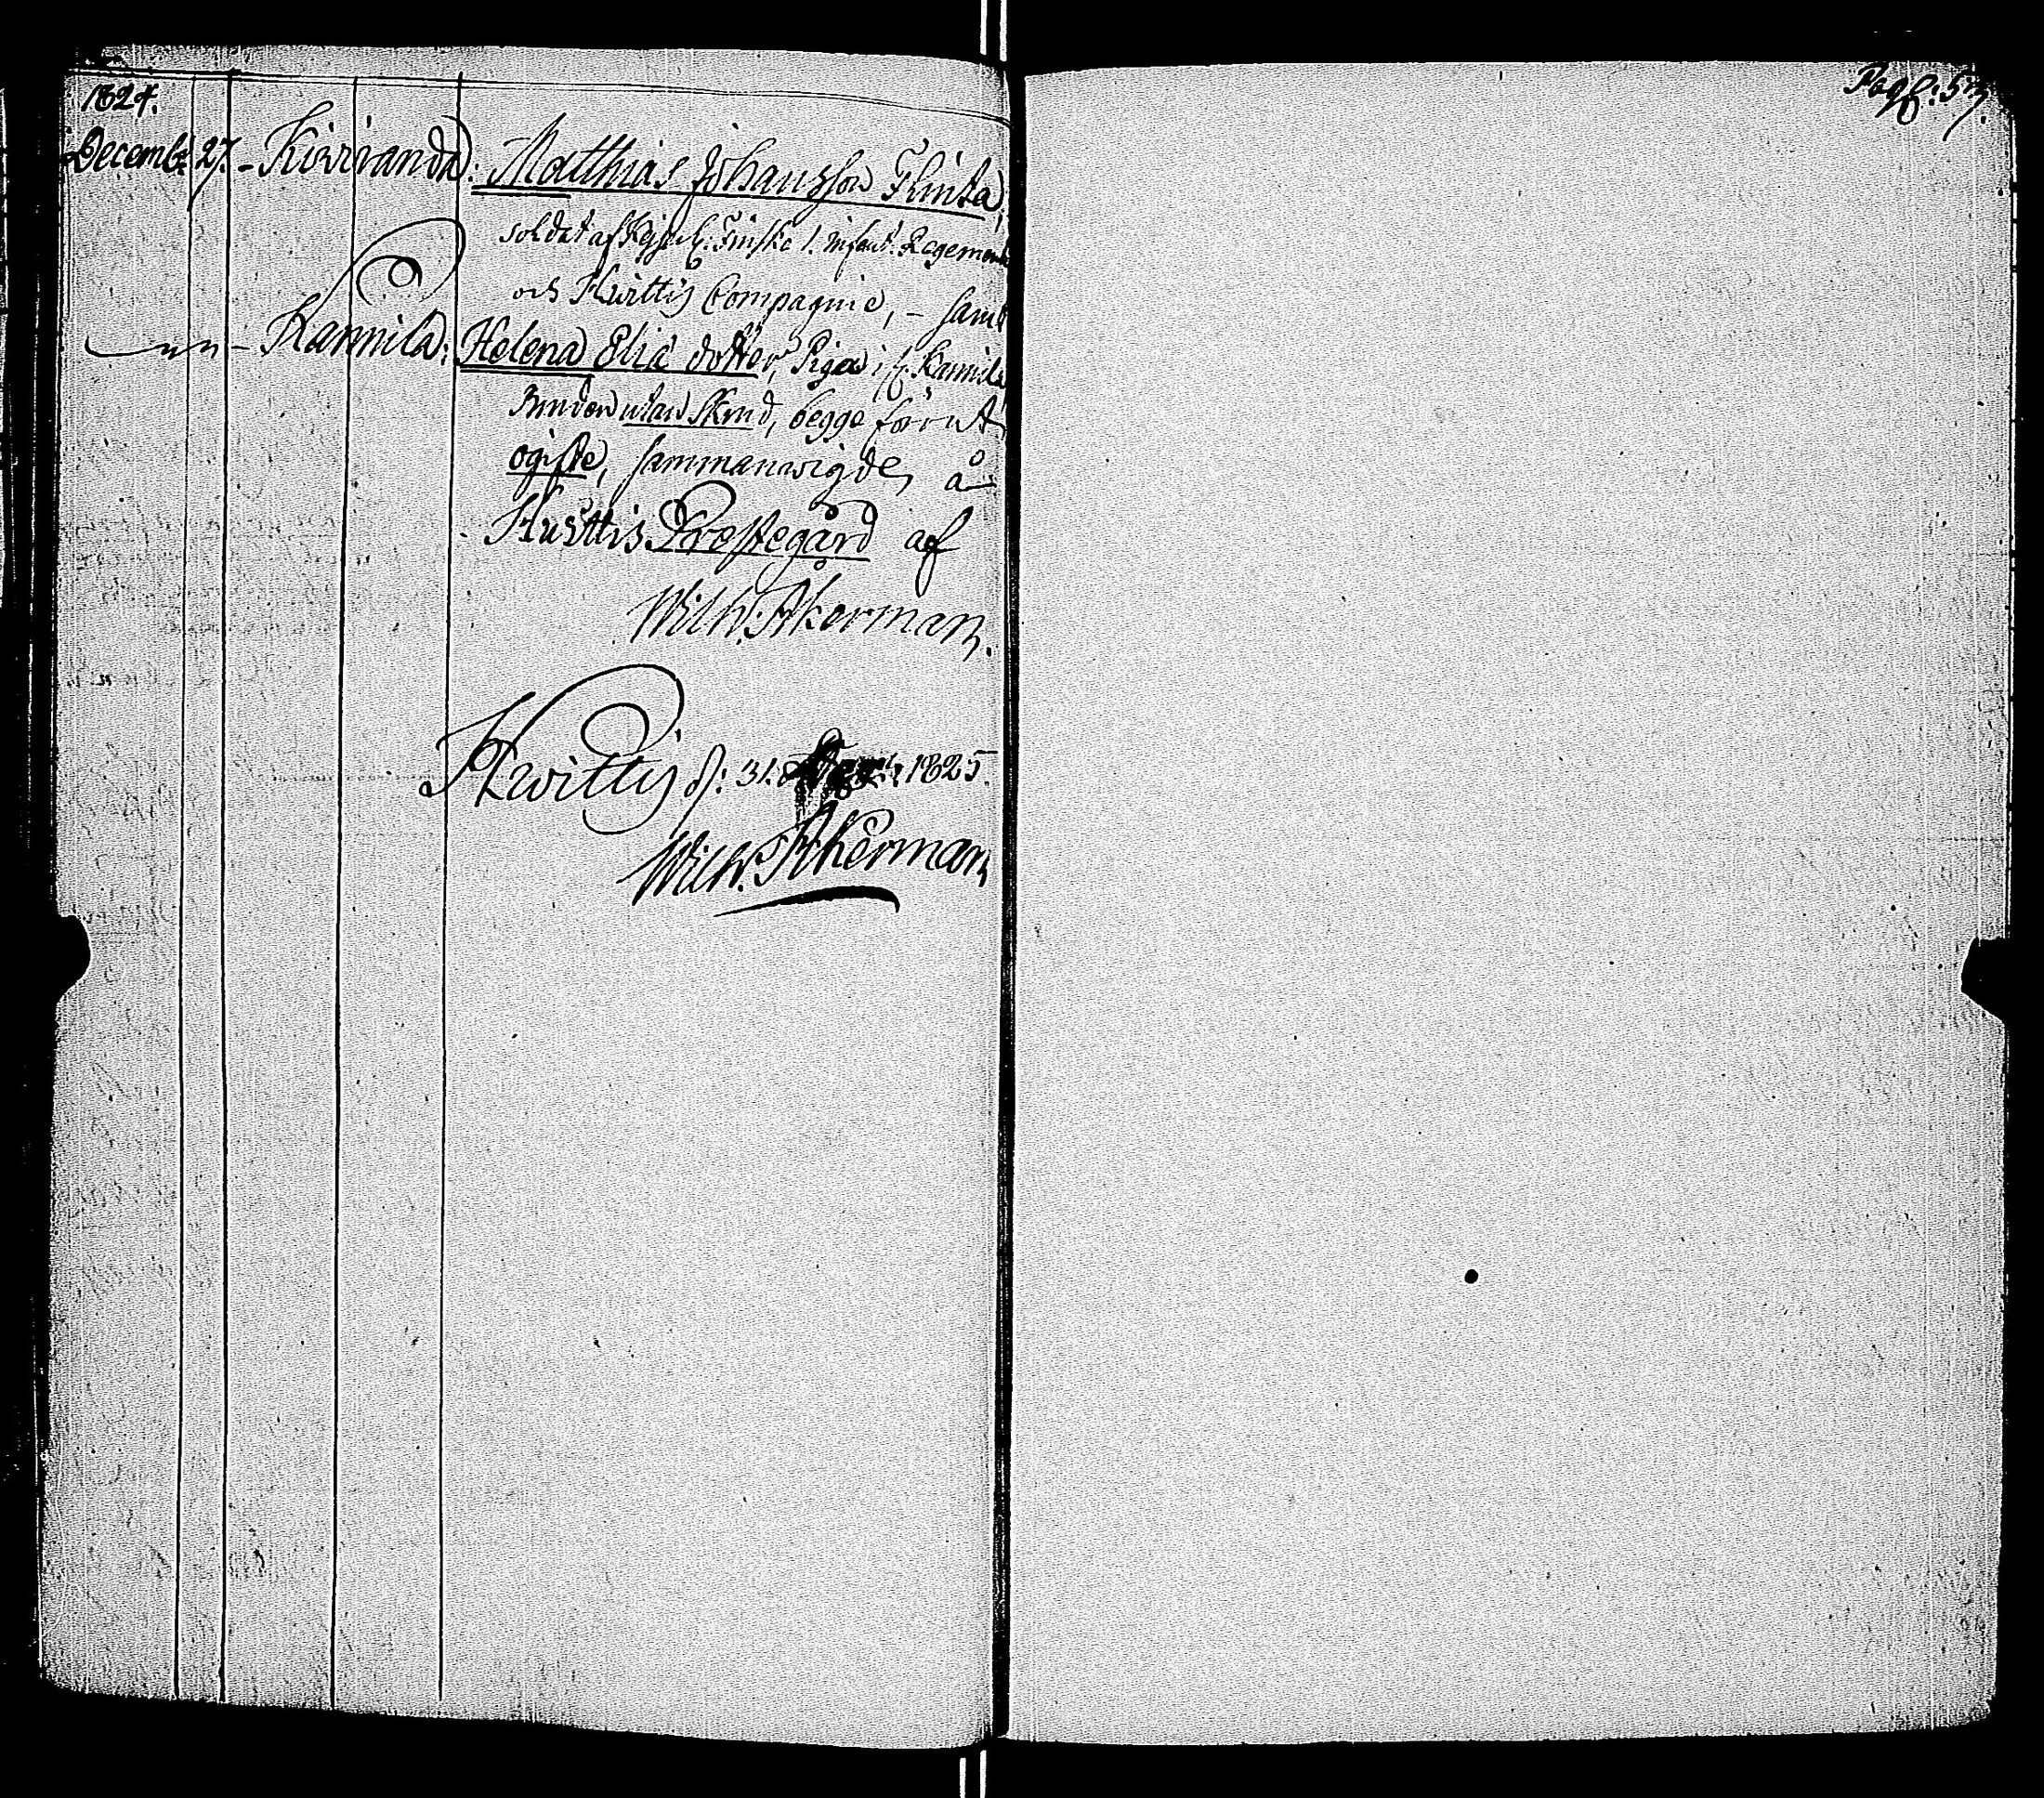 1824.
Decemb: 27. - Kiviranda: Matthias Johansson Flinta,
soldat af Kejserl: Finske 1. Infant: Regement
och Huittis Compagnie, - samt
- " - Karnila: Helena Eliæ dotter, Piga i f. Karnila,
Bruden utan Skrud, begge förut
ogifte, sammanwigde å
Huittis Prestegård af
Wilh. Åkerman.
Hwittis d: 31. 1825.
Wilh. Åkerman
Pag: